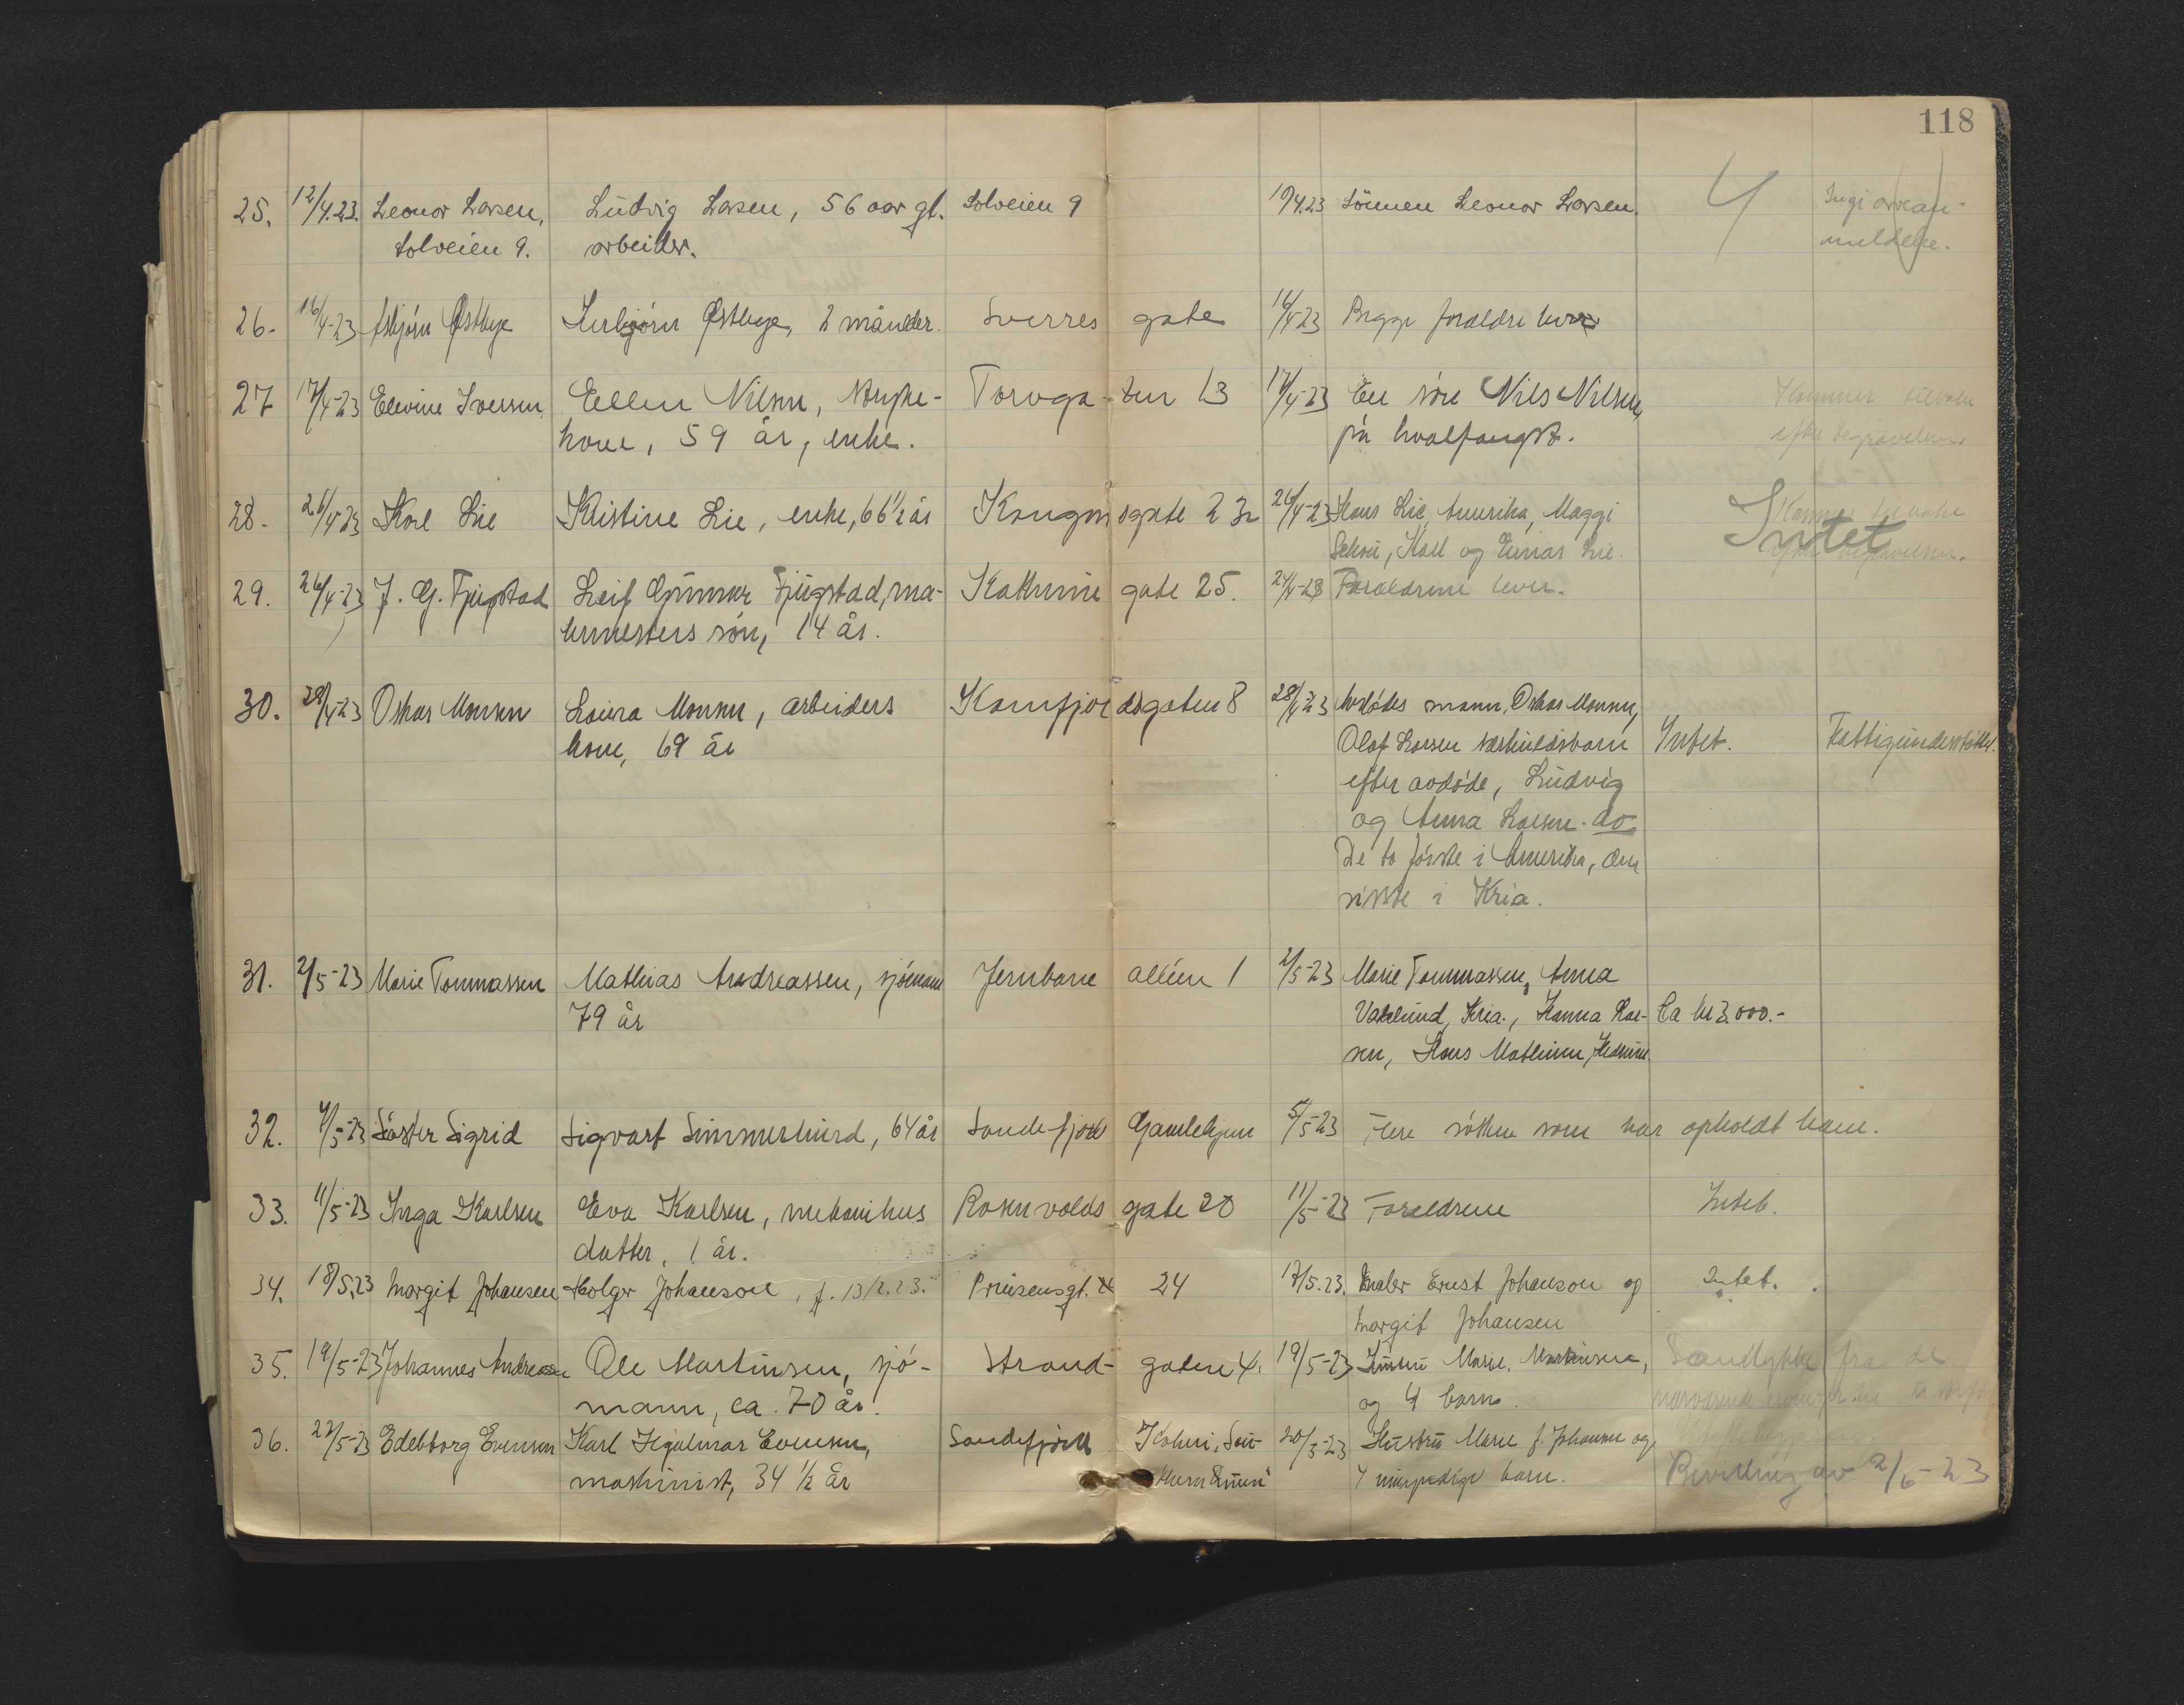 118
25. 12/4.23. Leonor Larsen, Ludvig Larsen, 56 aar gl. Solveien 9 10/4.23 Sönnen Leonor Larsen. Ingi arvean-
Solveien 9. arbeider. meldelse.
26. 16/4-23 Asbjörn Østbye Østbye, 2 månder. Sverres gate 16/4-23 Begge foreldre lever
27 17/4-23 Elevine Iversen, Ellen Nilsen, kone, 59 år, enke. Torvga-ten 13 17/4-23 En sön Nils Nilsen, Kommer tilbake
på hvalfangst. efter begravelsen.
28. 26/4-23 Karl Lie Kristine Lie, enke, 66 1/2 år Kongensgate 26/4-23 Hans Lie, Amerika, Maggi Kommer tilbake
Schou, Karl og Einar Lie. Intet efter begravelsen.
29. 26/4-23 J. G. Fjugstad Leif Gunnar Fjugstad, ma- Kathrine gate 25. Foreldrene lever.
lermesters sön, 14 år.
30. 28/4-23 Oskar Monsen Laura Monsen, arbeiders Kamfjordsgaten 8 28/4-23 Avdödes mann, Oskar Monsen,
kone, 69 år Olaf Larsen særkuldsbarn Intet. Fattigunderstöttet.
efter avdöde, Ludvig
og Anna Larsen. do.
De to förste i Amerika, den
siste i Kria.
31. 2/5-23 Marie Tommassen Mathias Andreassen, sjömann Jernbane alléen 1 2/5-23 Marie Tommassen, Anna
79 år Kria., Hanna Lar- Ca kr 3.000.-
sen, Hans Mathisen,
32. 4/5-23 Söster Sigrid Sigvart 64 år Sandefjord Gamlehjem 5/5-23 Flere söskn som har opholdt ham.
33. 11/5-23 Inga Karlsen Eva Karlsen, mekanikus Rosenvolds gate 20 11/5-23 Foreldrene Intet.
datter, 1 år.
34. 18/5.23 Margit Johansen Holger Johanson, f. 13/2.23. Prinsensgt. 24 17/5.23. Maler Ernst Johanson og Intet.
Margit Johansen
35. 19/5-23 Johannes Andreassen Ole Martinsen, sjö- Strand- gaten 4. 19/5-23 Hustru Marie Martinsen, Samtykke fra de
mann, ca. 70 år. og 4 barn. nærværende
36. 22/5-23 Edebborg Evensen Karl Hjalmar Evensen, Sandefjord 20/3-23 Hustru Marie f. Johansen og
maskinist, 34 1/2 år 4 umyndige barn. Bevilling av 2/6-23